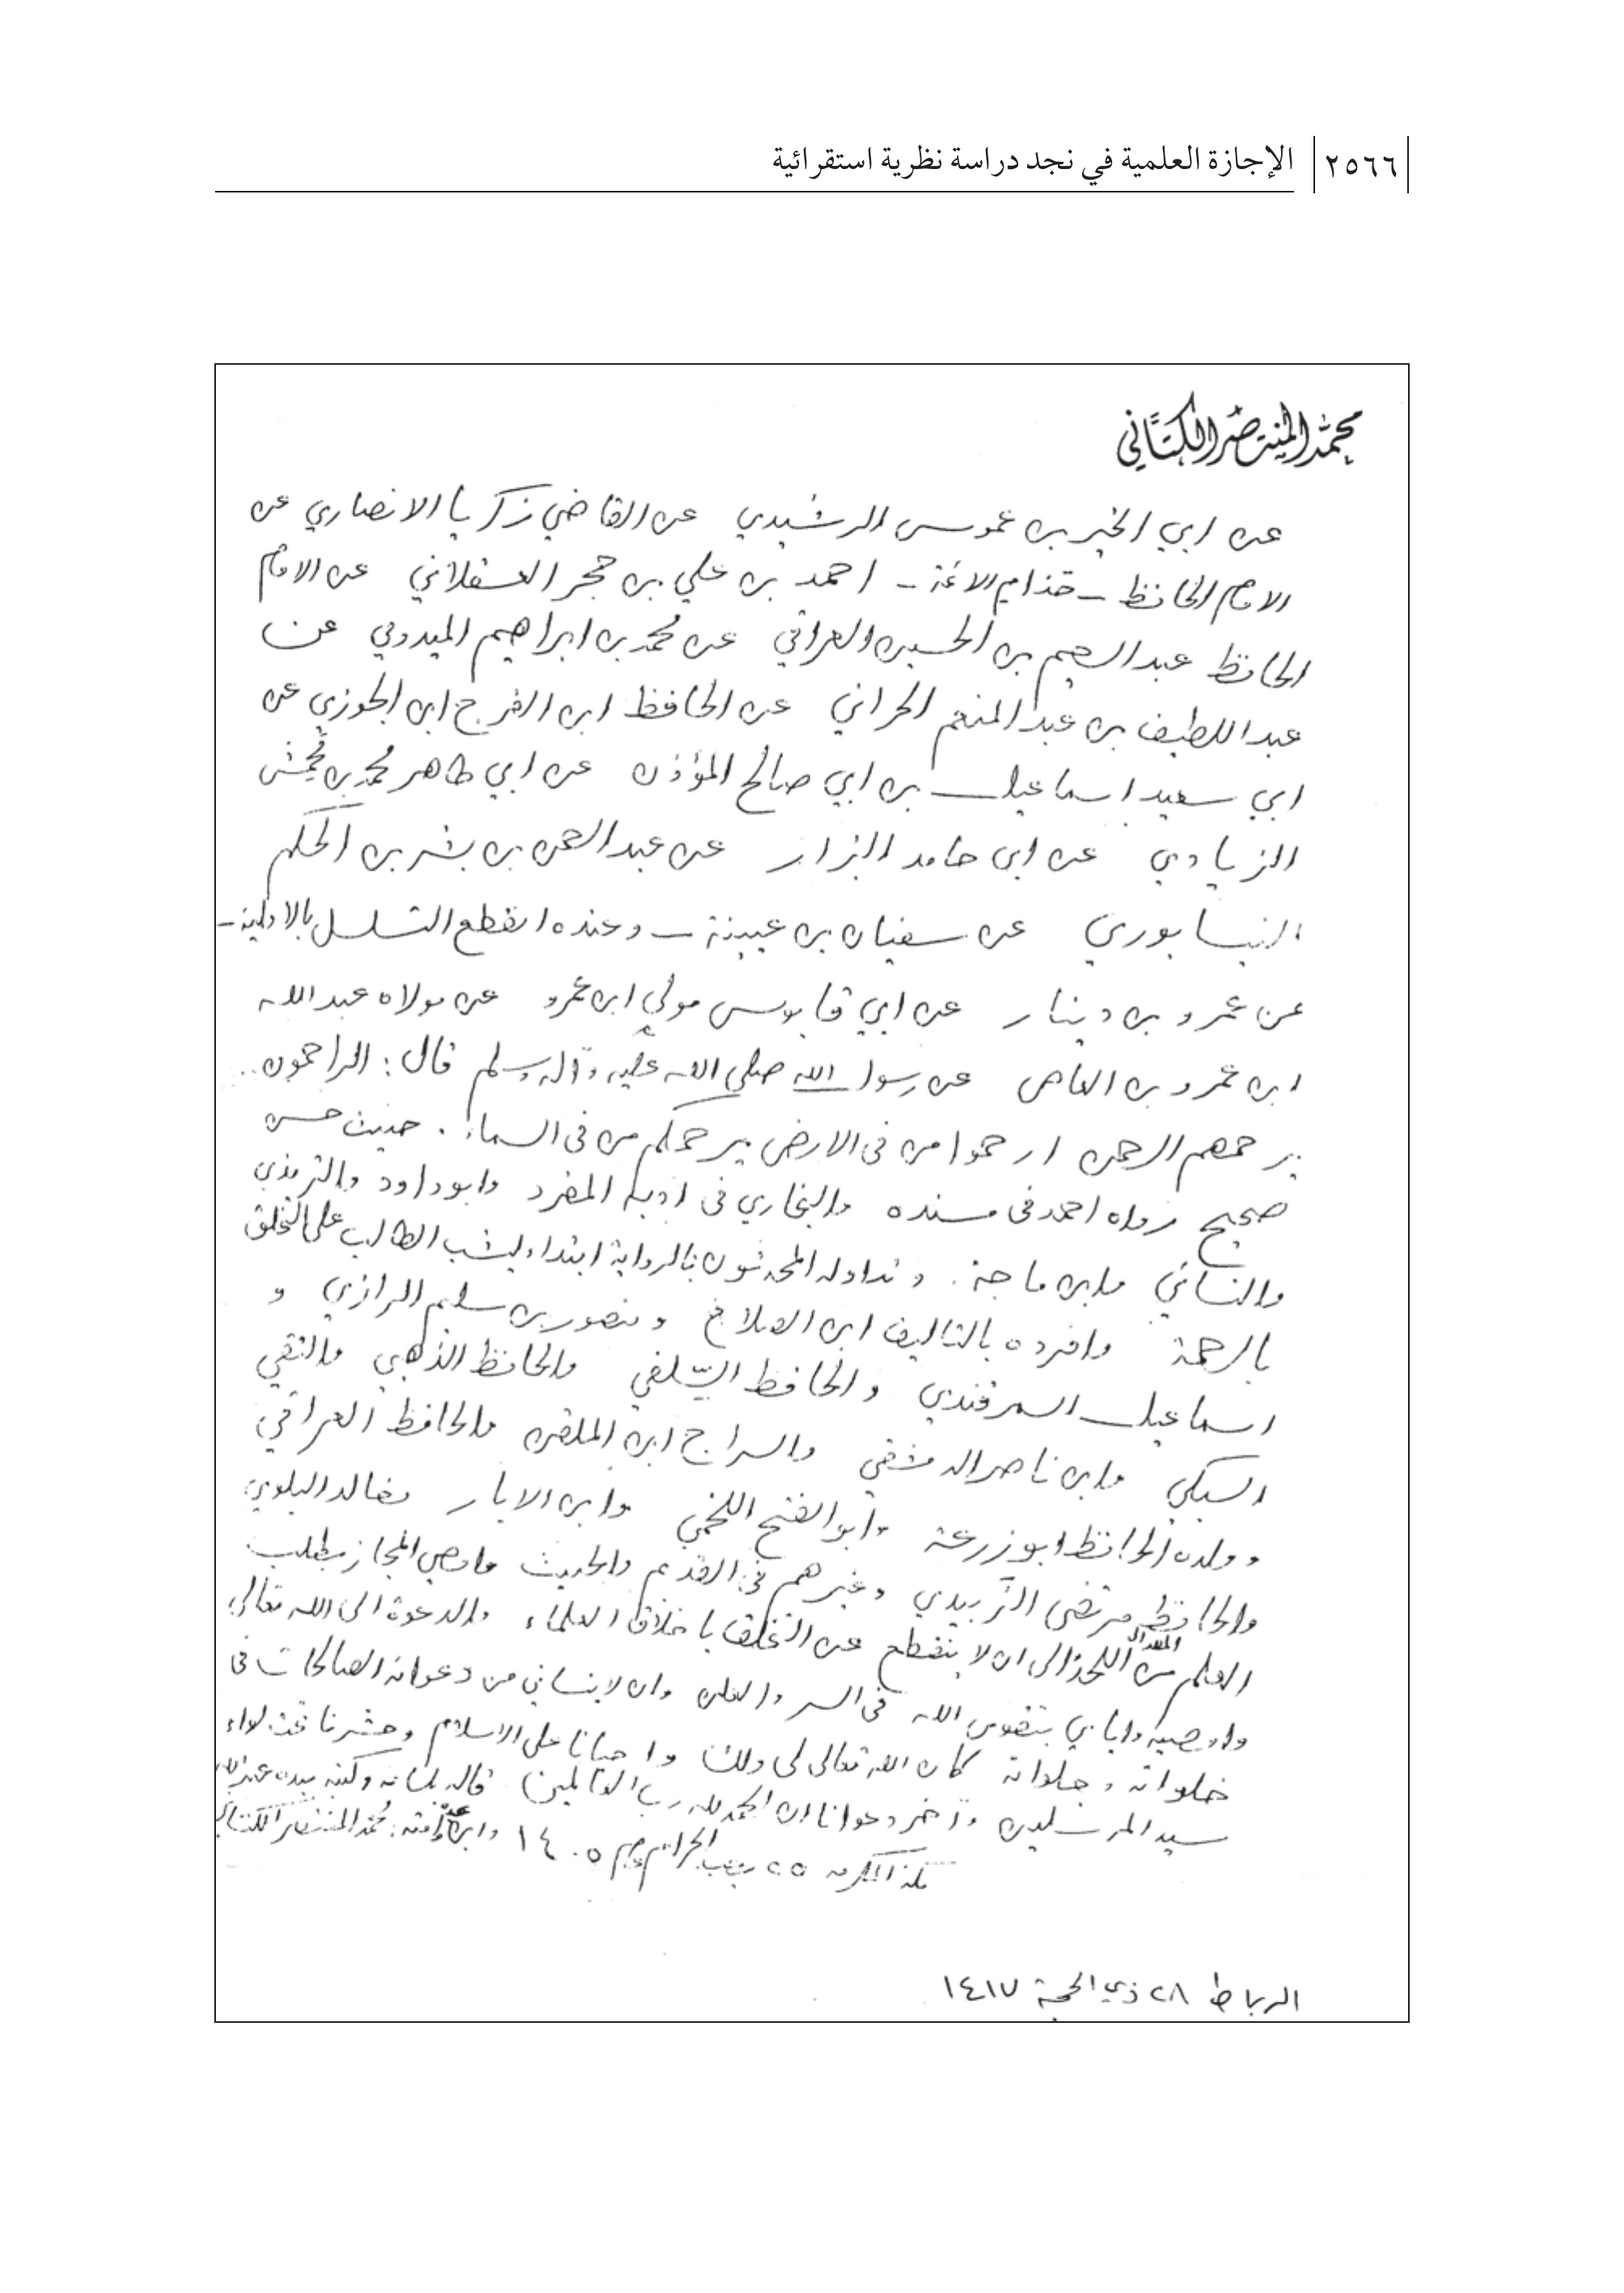 ٢٥٦٦ الإجازة العلمية في نجد دراسة نظرية استقرائية
محمد المنتصر الكتاني
عن ابي الخير بن عموس الرشيدي عن القاضي زكريا الانصاري عن
الامام الحافظ – حذام الائمة – احمد بن علي بن حجر العسقلاني عن الامام
الحافظ عبد الرحيم بن الحسين العراقي عن محمد بن ابراهيم الميدومي عن
عبد اللطيف بن عبد المنعم الحراني عن الحافظ ابن الفرج ابن الجوزي عن
ابي سعيد اسماعيل بن ابي صالح المؤذن عن ابي طاهر محمد بن محمش
الزيادي عن ابي حامد البزار عن عبد الرحمن بن بشر بن الحكم
النيسابوري عن سفيان بن عيينة – وعنده انقطع التسلسل بالاولية –
عن عمرو بن دينار عن ابي قابوس مولى ابن عمرو عن مولاه عبد الله
ابن عمرو بن العاص عن رسول الله صلى الله عليه وآله وسلم قال: الراحمون
يرحمهم الرحمن ارحموا من في الارض يرحمكم من في السماء. حديث حسن
صحيح رواه احمد في مسنده والبخاري في ادبه المفرد وابو داود والترمذي
والنسائي وابن ماجة. وتداوله المحدثون بالرواية ابتداء ليشب الطالب على التخلق
بالرحمة وافرده بالتاليف ابن الصلاح ومنصور بن سليم الرازي و
اسماعيل السمرقندي والحافظ السِّلفي والحافظ الذهبي والتقي
السبكي وابن ناصر الدمشقي والسراج ابن الملقن والحافظ العراقي
وولده الحافظ ابو زرعة وأبو الفتح اللخمي وابن الابار وخالد البلوي
والحافظ مرتضى الزَّبيدي وغيرهم في القديم والحديث واوصي المجاز بطلب
العلم من المهد الى اللحد الى ان لا ينقطع عن التخلق باخلاق العلماء والدعوة الى الله تعالى
واوصيه واياي بتقوى الله في السر والعلن وان لا ينساني من دعواته الصالحات في
خلواته وجلواته كان الله تعالى لي وله واحيانا على الاسلام وحشرنا تحت لواء
سيد المرسلين وآخر دعوانا ان الحمد لله رب العالمين قاله بلسانه وكتبه بيده عبد الله
وابن عبده وأمته: محمد المنتصر الكتاني
مكة المكرمة ٢٥ رجب الحرام عام ١٤٠٥
الرباط ٢٨ ذي الحجة ١٤١٧